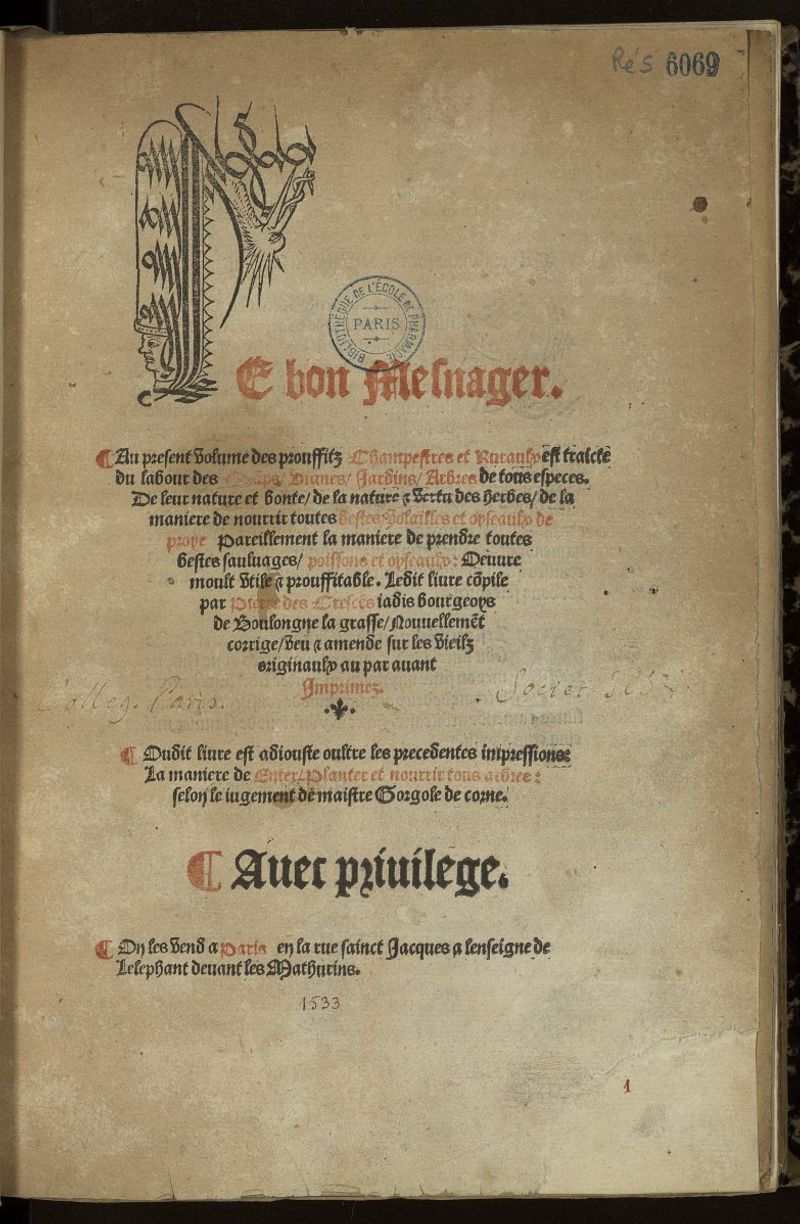 Rés 6069
BIBLIOTHÈQUE DE L'ÉCOLE DE PHARMACIE
PARIS
LE bon Mesnager.
¶ Au present volume des prouffitz Champestres et Ruraulx est traicte
du labour des Champs/ Vignes/ Jardins/ Arbres de tous especes.
De leur nature et bonte/ de la nature & vertu des herbes/ de la
maniere de nourrir toutes bestes/ volailles et oyseaulx de
proye Pareillement la maniere de prendre toutes
bestes sauluages/ poissons et oyseaulx: Oeuure
moult vtile & prouffitable. Ledit liure cõpile
par Pierre des Cresces iadis bourgeoys
de Boulongne la grasse/ Nouuellemẽt
corrige/ veu & amende sur les vieilz
originaulx au par auant
Imprimez.
Colleg. Paris. Societ.
¶ Oudit liure est adiouste oultre les precedentes impressions:
La maniere de Enter/ Planter et nourrir tous arbres:
selon le iugement de maistre Gorgole de corne.
¶ Auec priuilege.
¶ On les vend a Paris en la rue sainct Jacques a lenseigne de
Lelephant deuant les Mathurins.
1533
1